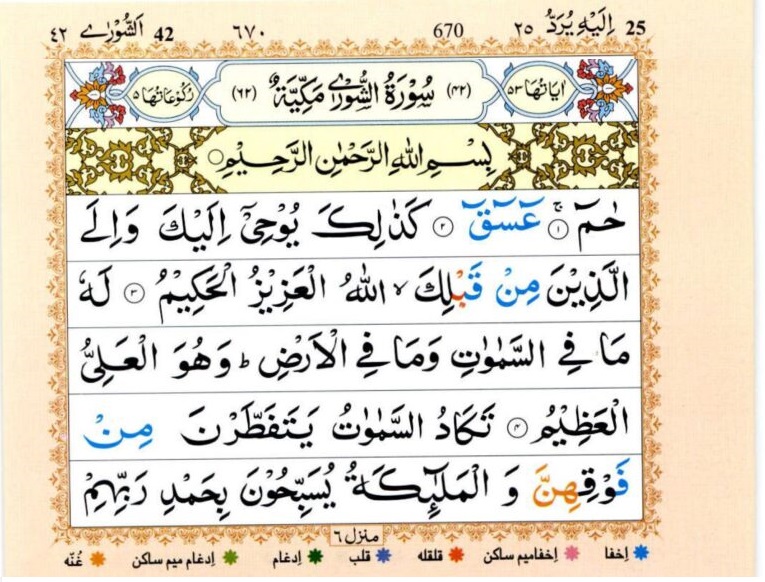 25 اِلَيْهِ يُرَدُّ ٢٥ 670 ٦٧٠ 42 اَلشُّوْرٰى ٤٢
اٰيَاتُهَا ٥٣ (٤٢) سُوْرَةُ الشُّوْرٰى مَكِّيَّةٌ (٦٢) رُكُوْعَاتُهَا ٥
بِسْمِ اللّٰهِ الرَّحْمٰنِ الرَّحِيْمِ
حٰمٓ ۚ ١ عٓسٓقٓ ٢ كَذٰلِكَ يُوْحِيْٓ اِلَيْكَ وَاِلَى
الَّذِيْنَ مِنْ قَبْلِكَ ۙ اللّٰهُ الْعَزِيْزُ الْحَكِيْمُ ٣ لَهٗ
مَا فِي السَّمٰوٰتِ وَمَا فِي الْاَرْضِ ؕ وَهُوَ الْعَلِيُّ
الْعَظِيْمُ ٤ تَكَادُ السَّمٰوٰتُ يَتَفَطَّرْنَ مِنْ
فَوْقِهِنَّ وَ الْمَلٰٓئِكَةُ يُسَبِّحُوْنَ بِحَمْدِ رَبِّهِمْ
منزل ٦
اِخفا اِخفامیم ساکن قلقله قلب اِدغام اِدغام میم ساکن غُنّه